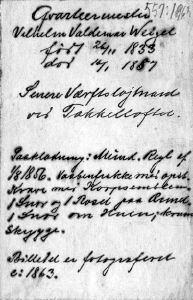 557:1963.
Qvarteermester
Vilhelm Valdemar Wessel
født 24/11 1833
død 14/1 1887
Senere Værftsløjtnant
ved Takkelloftet.
Paaklædning: Mund. Regl. af
1856. Vaabenfrakke med opst.
Krave med Korpsemblem
1 Snor og 1 Roset paa Ærmet
1 Snor om Huen,
Skygge.
Billedet er fotograferet
c: 1863.